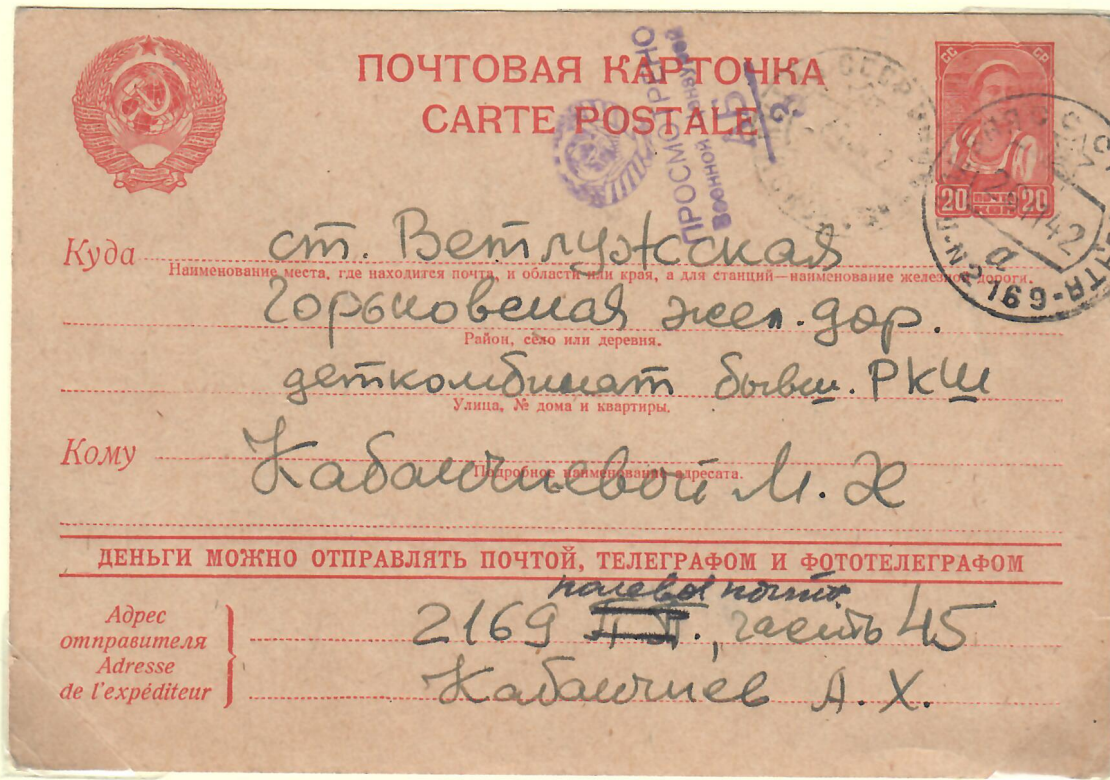 ПОЧТОВАЯ КАРТОЧКА
CARTE POSTALE
ПРОСМОТРЕНО
Военной Цензурой
СС СР
20 ПОЧТА КОП 20
42
Куда ст. Ветлужская
Наименование места, где находится почта, и области или края, а для станций—наименование железной дороги.
Горьковская жел. дор.
Район, село или деревня.
деткомбинат бывш. РКШ
Улица, № дома и квартиры.
Кому
Подробное наименование адресата.
М. Х
ДЕНЬГИ МОЖНО ОТПРАВЛЯТЬ ПОЧТОЙ, ТЕЛЕГРАФОМ И ФОТОТЕЛЕГРАФОМ
полевая почта
Адрес отправителя
Adresse de l'expéditeur
2169 П.П., часть 45
А. Х.
№ 2169
а